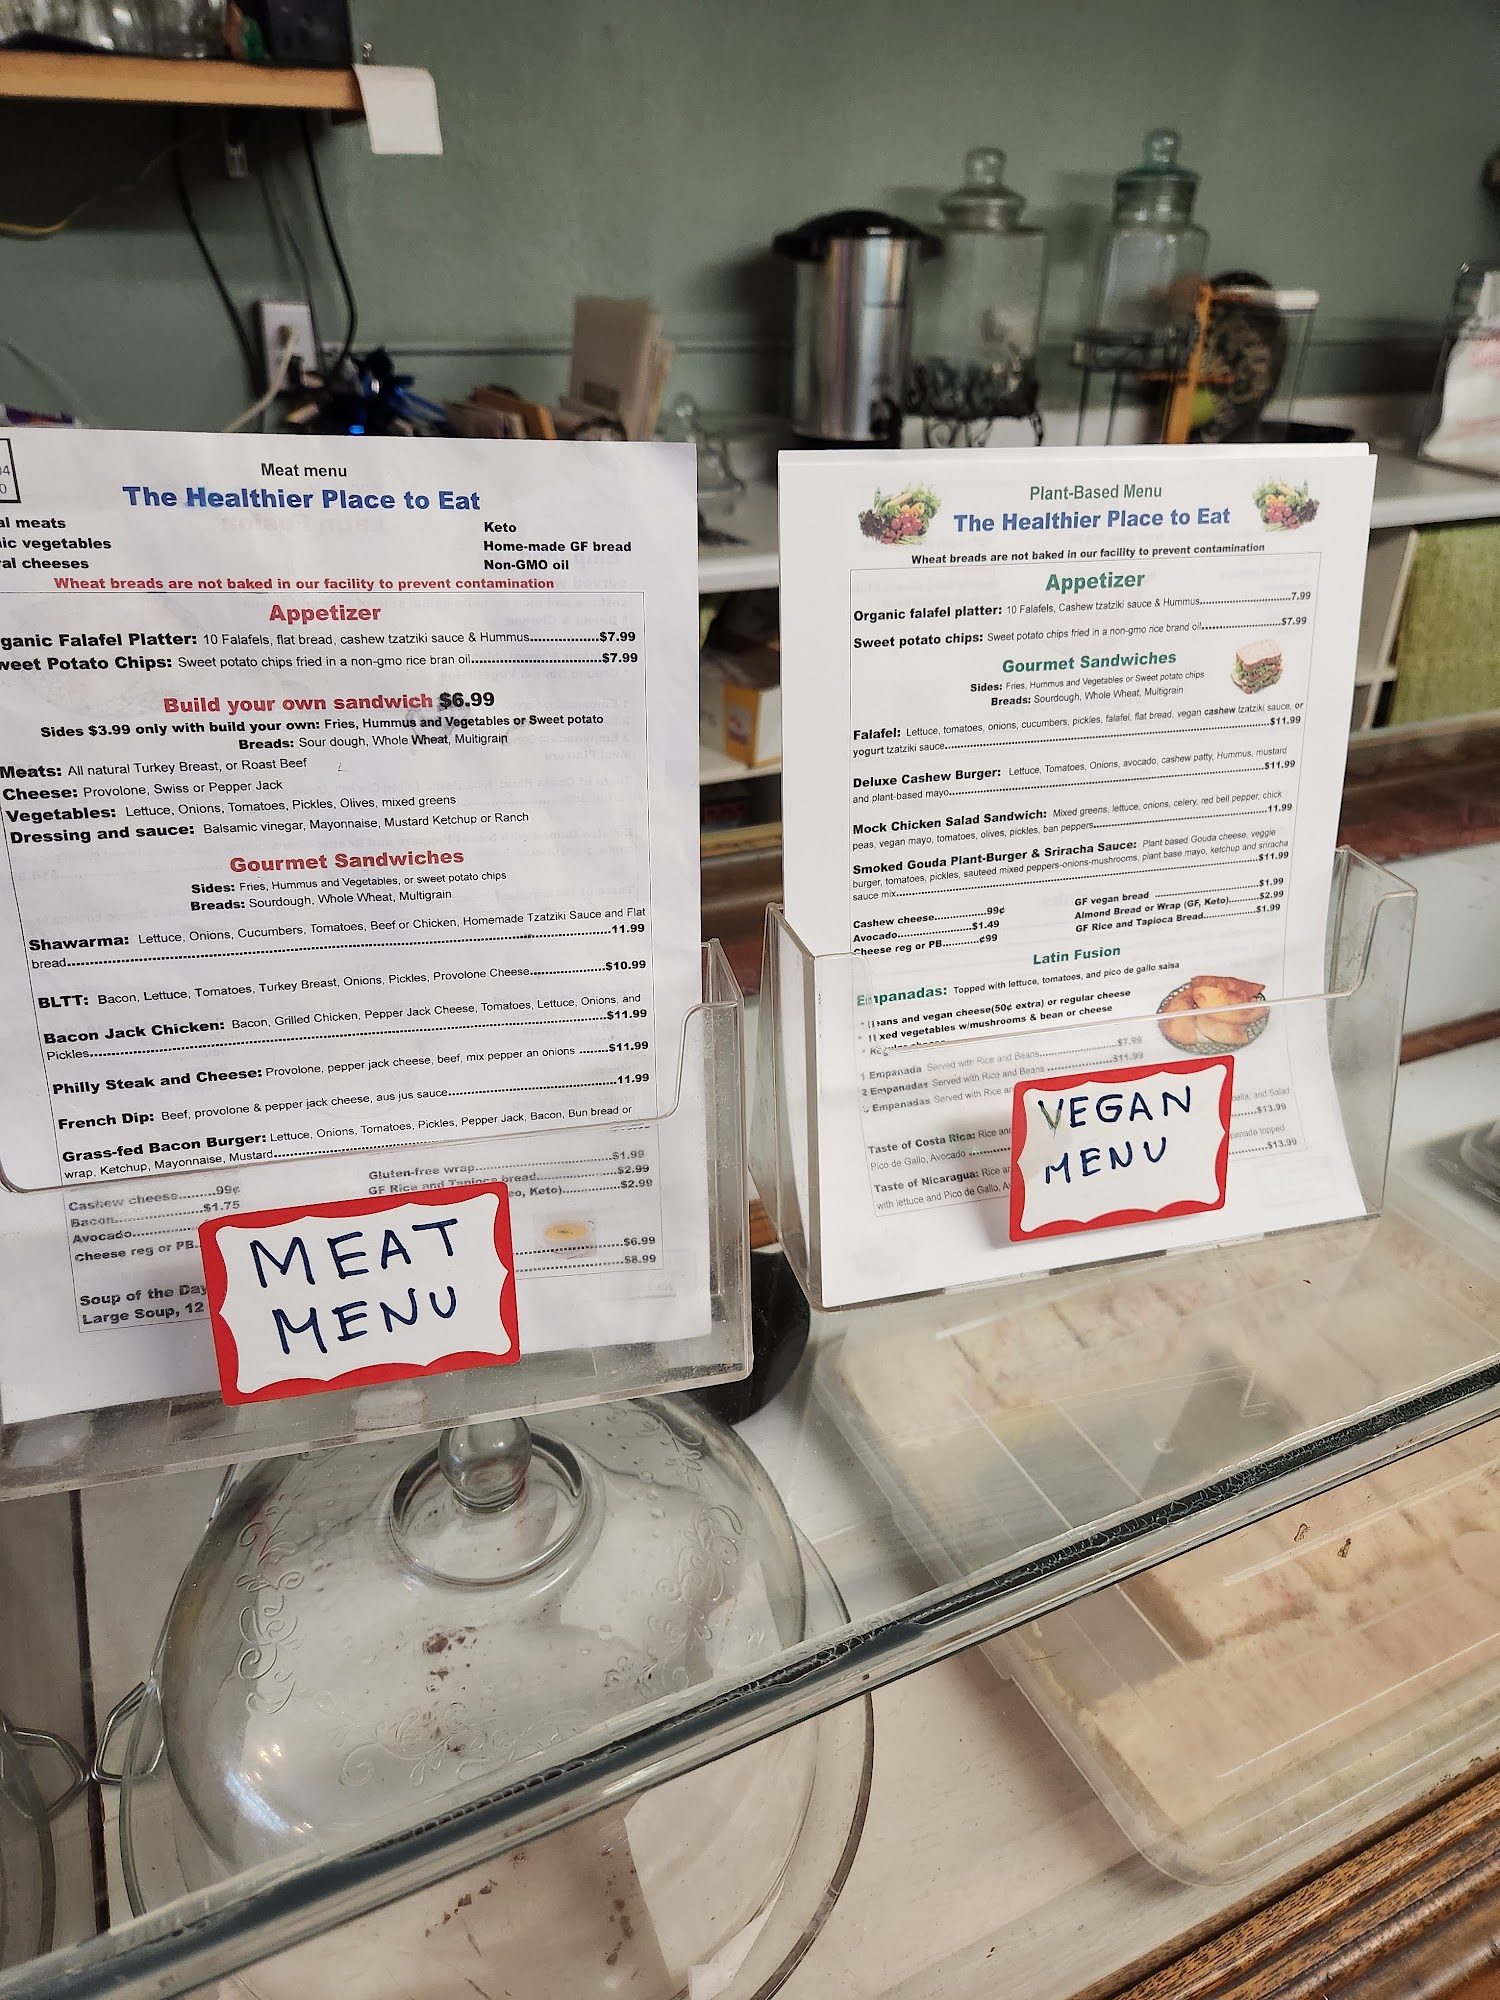 Meat menu
The Healthier Place to Eat
al meats
ic vegetables
al cheeses
Keto
Home-made GF bread
Non-GMO oil
Wheat breads are not baked in our facility to prevent contamination
Appetizer
ganic Falafel Platter: 10 Falafels, flat bread, cashew tzatziki sauce & Hummus..............$7.99
weet Potato Chips: Sweet potato chips fried in a non-gmo rice bran oil..........................$7.99
Build your own sandwich $6.99
Sides $3.99 only with build your own: Fries, Hummus and Vegetables or Sweet potato
Breads: Sour dough, Whole Wheat, Multigrain
Meats: All natural Turkey Breast, or Roast Beef
Cheese: Provolone, Swiss or Pepper Jack
Vegetables: Lettuce, Onions, Tomatoes, Pickles, Olives, mixed greens
Dressing and sauce: Balsamic vinegar, Mayonnaise, Mustard Ketchup or Ranch
Gourmet Sandwiches
Sides: Fries, Hummus and Vegetables, or sweet potato chips
Breads: Sourdough, Whole Wheat, Multigrain
Shawarma: Lettuce, Onions, Cucumbers, Tomatoes, Beef or Chicken, Homemade Tzatziki Sauce and Flat
bread..........11.99
BLTT: Bacon, Lettuce, Tomatoes, Turkey Breast, Onions, Pickles, Provolone Cheese...............$10.99
Bacon Jack Chicken: Bacon, Grilled Chicken, Pepper Jack Cheese, Tomatoes, Lettuce, Onions, and
Pickles..........$11.99
Philly Steak and Cheese: Provolone, pepper jack cheese, beef, mix pepper an onions ........$11.99
French Dip: Beef, provolone & pepper jack cheese, aus jus sauce..........11.99
Grass-fed Bacon Burger: Lettuce, Onions, Tomatoes, Pickles, Pepper Jack, Bacon, Bun bread or
wrap, Ketchup, Mayonnaise, Mustard..........
Cashew cheese........99¢
Bacon..........$1.75
Avocado..........
Cheese reg or PB..
Gluten-free wrap..........$1.99
GF Rice and Tapioca bread..........$2.99
eo, Keto)..........$2.99
$6.99
$8.99
Soup of the Day
Large Soup, 12
MEAT
MENU
Plant-Based Menu
The Healthier Place to Eat
Wheat breads are not baked in our facility to prevent contamination
Appetizer
Organic falafel platter: 10 Falafels, Cashew tzatziki sauce & Hummus..........7.99
Sweet potato chips: Sweet potato chips fried in a non-gmo rice brand oil..........$7.99
Gourmet Sandwiches
Sides: Fries, Hummus and Vegetables or Sweet potato chips
Breads: Sourdough, Whole Wheat, Multigrain
Falafel: Lettuce, tomatoes, onions, cucumbers, pickles, falafel, flat bread, vegan cashew tzatziki sauce, or
yogurt tzatziki sauce..........$11.99
Deluxe Cashew Burger: Lettuce, Tomatoes, Onions, avocado, cashew patty, Hummus, mustard
and plant-based mayo..........$11.99
Mock Chicken Salad Sandwich: Mixed greens, lettuce, onions, celery, red bell pepper, chick
peas, vegan mayo, tomatoes, olives, pickles, ban peppers..........11.99
Smoked Gouda Plant-Burger & Sriracha Sauce: Plant based Gouda cheese, veggie
burger, tomatoes, pickles, sauteed mixed peppers-onions-mushrooms, plant base mayo, ketchup and sriracha
sauce mix..........$11.99
Cashew cheese.............99¢
Avocado..........$1.49
Cheese reg or PB..........¢99
GF vegan bread ..........$1.99
Almond Bread or Wrap (GF, Keto)..........$2.99
GF Rice and Tapioca Bread..........$1.99
Latin Fusion
Empanadas: Topped with lettuce, tomatoes, and pico de gallo salsa
* Beans and vegan cheese(50¢ extra) or regular cheese
* Mixed vegetables w/mushrooms & bean or cheese
* Regular cheese
1 Empanada Served with Rice and Beans..........$7.99
2 Empanadas Served with Rice and Beans ..........$11.99
Empanadas Served with Rice
Taste of Costa Rica: Rice an
Pico de Gallo, Avocado ..........
and Salad
$13.99
Taste of Nicaragua: Rice a
with lettuce and Pico de Gallo, A
panada topped
$13.99
VEGAN
MENU